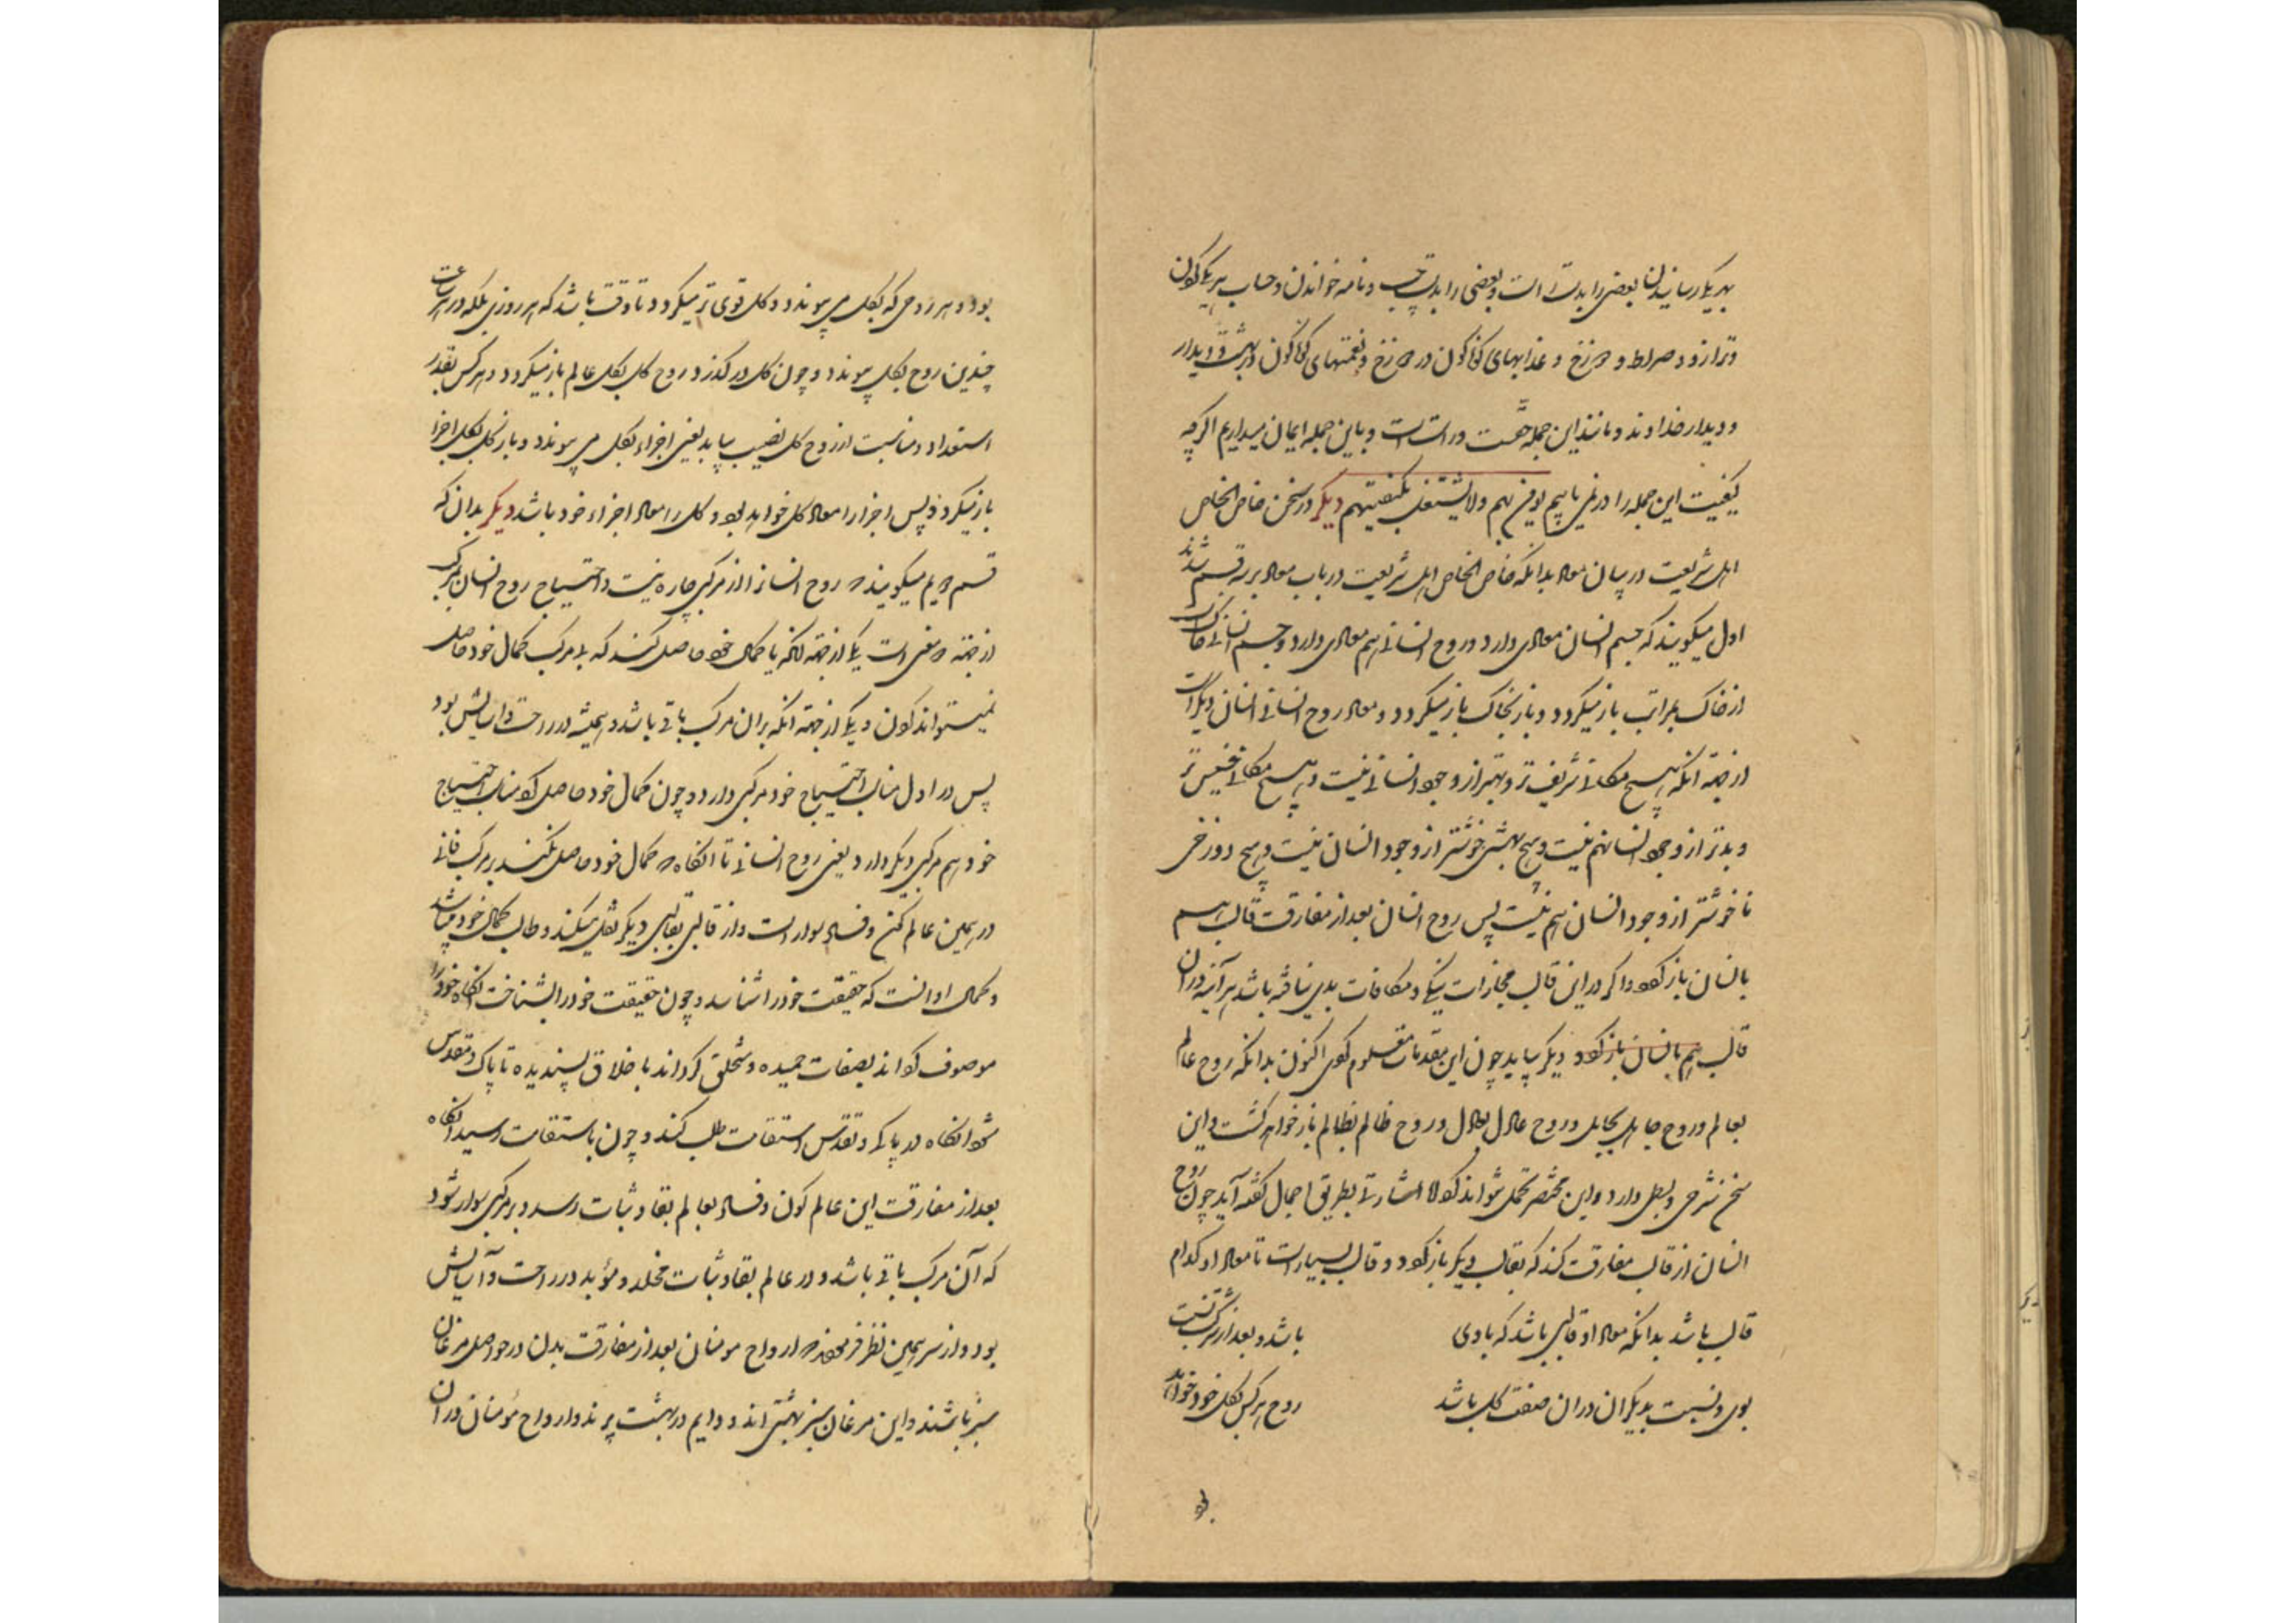 بهر یک رسانیدن بعضی را بدست راست و بعضی را بدست چپ و نامه خواندن و حساب هر یک کردن
و ترازو و صراط و دوزخ و عذابهای کوناکون در دوزخ و نعمتهای کوناکون در بهشت و دیدار
و دیدار خداوند و مانند این جمله حقست و راست است و باین جمله ایمان میداریم اکرچه
کیفیت این جمله را در نمی یابیم نومن بهم ولا یشتغل بکیفیتهم دیکر در سخن خاص الخاص
اهل شریعت در بیان معاد بدانکه خاص الخاص اهل شریعت در باب معاد بر سه قسم شدند
اول میکویند که جسم انسان معادی دارد و روح انسانی هم معادی دارد و جسم انسانی خاک
از خاک بمراتب باز میکردد و باز بخاک باز میکردد و معاد روح انسانی انسان دیکر است
از جهة آنکه هیچ مکانی شریف تر و بهتر از وجود انسانی نیست و هیچ مکانی خسیس تر
و بدتر از وجود انسان هم نیست و هیچ بهشتی خوشتر از وجود انسان نیست و هیچ دوزخی
ناخوشتر از وجود انسان هم نیست پس روح انسان بعد از مفارقت قالب هم
بانسان باز کردد و اکر در این قالب مجازات نیکی و مکافات بدی نیافته باشد هر آینه در ان
قالب هم بانسان باز کردد دیکر بیاید چون این مقدمات معلوم کردی اکنون بدانکه روح عالم
بعالم و روح جاهل بجاهل و روح عادل بعادل و روح ظالم بظالم باز خواهد کشت و این
سخن شرحی و بسطی دارد و این مختصر تحمل نتواند کرد الا اشارتی بطریق اجمال کفته آید چون روح
انسان از قالب مفارقت کند که بقالب دیکر باز کردد و قالب بسیار است تا معاد او کدام
قالب باشد بدانکه معاد او قالبی باشد که با وی باشد و بعد از
بوی و نسبت بدیکران دران صفت کل باشد روح هر کس بکل خود خواهد
بود و هر روحی که بکل می پیوندد و کل قوی تر میکردد تا وقت باشد که هر روزی بلکه در هر ساعت
چندین روح بکل پیوندد و چون کل در کذرد روح کل بکل عالم باز میکردد و هر کس بقدر
استعداد و مناسبت از روح کل نصیب بیابد یعنی اجزاء بکل می پیوندد و باز کل بکل اجزا
باز میکردد پس اجزا را معاد کل خواهد بود و کل را معاد اجزاء خود باشد دیکر بدان که
قسم دویم میکویند که روح انسان را از مرکبی چاره نیست و احتیاج روح انسان بمرکب
از جهة دو معنی است یکی از جهة آنکه تا کمال خود حاصل کند که بی مرکب کمال خود حاصل
نمیتواند کردن و یکی از جهة آنکه بران مرکب باقی باشد و همیشه در راحت و آسایش بود
پس در اول مناسب احتیاج خود مرکبی دارد و چون کمال خود حاصل کرد مناسب احتیاج
خود هم مرکبی دیکر دارد یعنی روح انسانی تا آنکاه که کمال خود حاصل نکند بر مرکب فانی
در همین عالم کون و فساد سوار است و از قالبی بقالبی دیکر نقل میکند و طالب کمال خود میباشد
و کمال او آنست که حقیقت خود را شناسد و چون حقیقت خود را بشناخت آنکاه خود را
موصوف کرداند بصفات حمیده و متخلق کرداند باخلاق پسندیده تا پاک و مقدس
شود آنکاه در پاکی و تقدس استقامت طلب کند و چون باستقامت رسید آنکاه
بعد از مفارقت این عالم کون و فساد بعالم بقا و ثبات رسد و بر مرکبی سوار شود
که آن مرکب باقی باشد و در عالم بقا و ثبات مخلد و مؤبد در راحت و آسایش
بود و از سر همین نظر فرمودند که ارواح مومنان بعد از مفارقت بدن در حواصل مرغان
سبز باشند و این مرغان سبز بهشتی اند و دایم در بهشت پرند و ارواح مؤمنان در ان